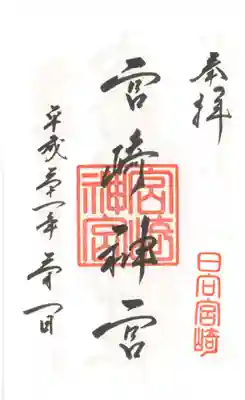 奉拝
日向宮崎
宮崎神宮
宮崎神宮
平成 一年 月 日